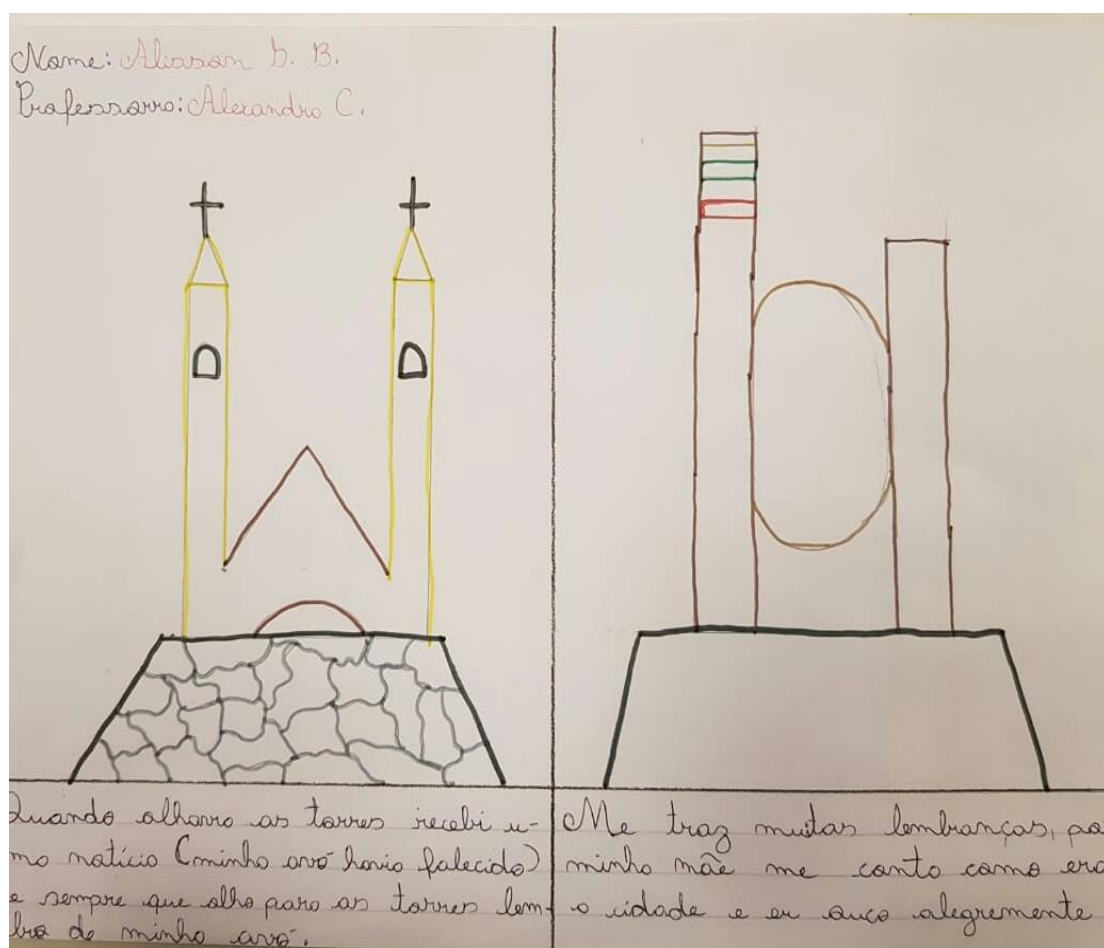 Nome: Alisson D. B.
Professorra: Alexandra C.
Quando olhava as torres recebi u-
ma notícia (minha avó havia falecido)
e sempre que olho para as torres lem-
bro de minha avó.
Me traz muitas lembranças, po
minha mãe me conta como era
a cidade e eu ouço alegremente